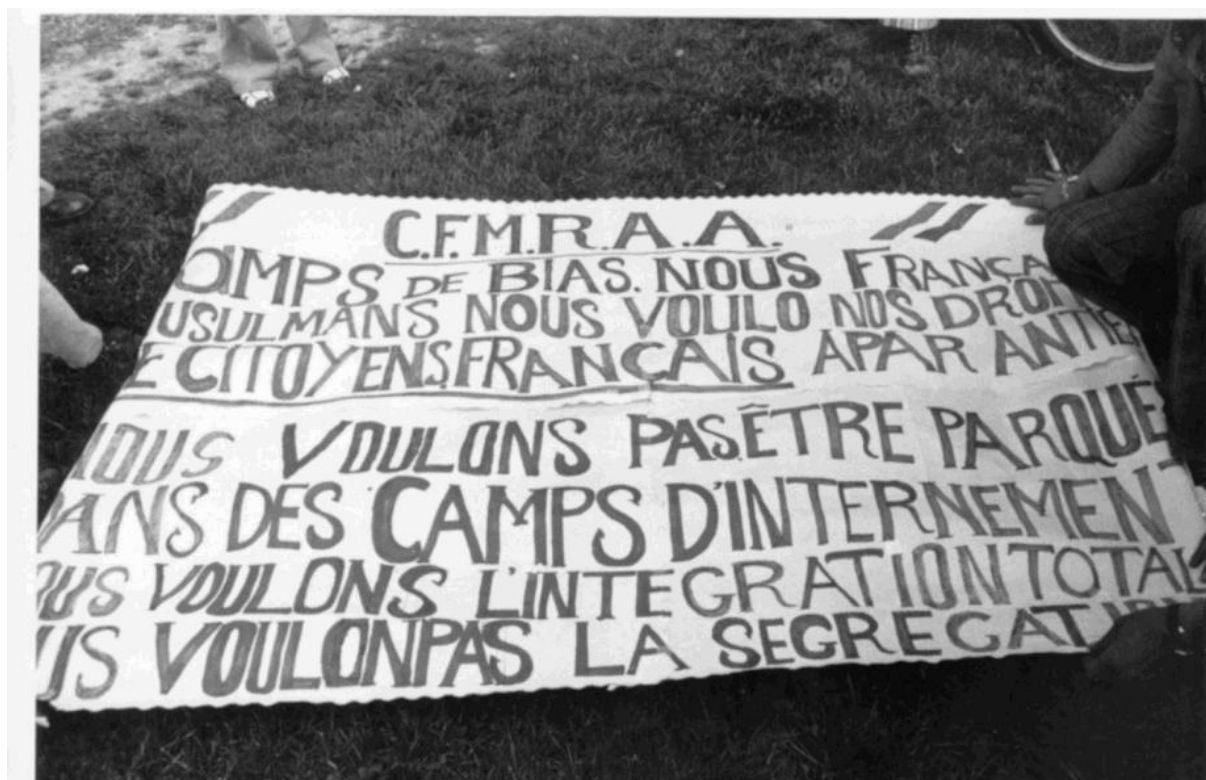 C.F.M.R.A.A.
CAMPS DE BIAS. NOUS FRANÇA
USULMANS NOUS VOULO NOS DROI
E CITOYENS FRANÇAIS APAR ANTIE
NOUS VOULONS PAS ÊTRE PARQUÉ
DANS DES CAMPS D'INTERNEMENT
OUS VOULONS L'INTEGRATION TOTAL
US VOULONPAS LA SEGREGATION